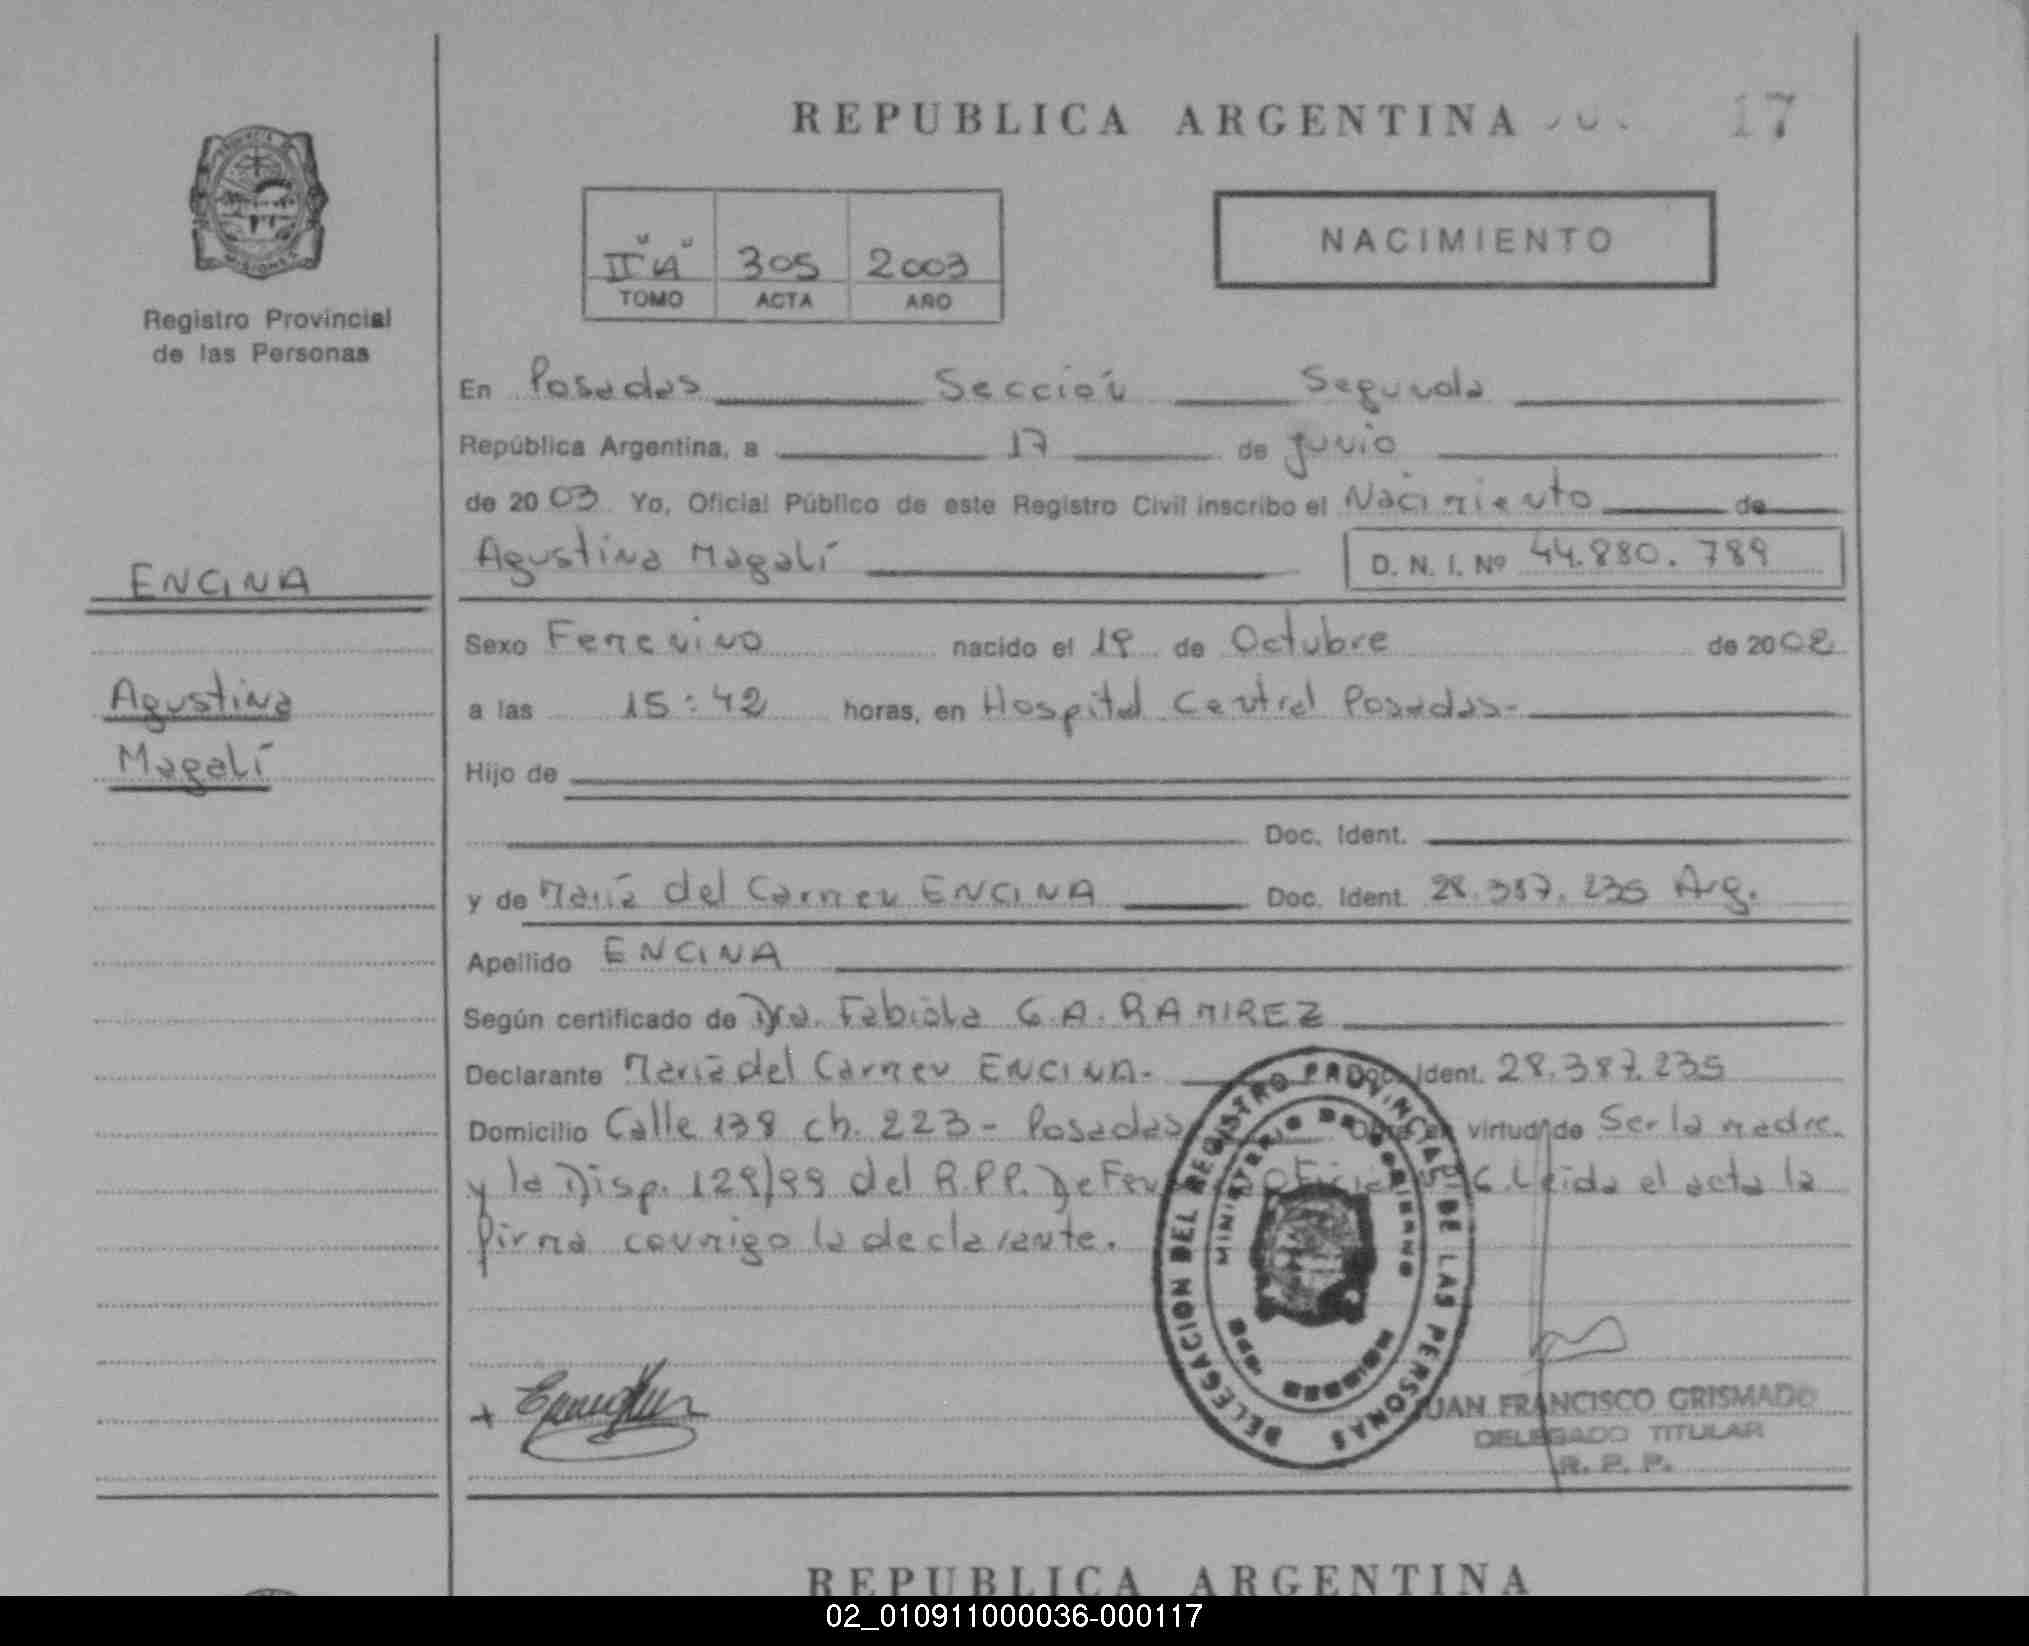 REPUBLICA ARGENTINA
17
PROVINCIA DE
MISIONES
Registro Provincial
de las Personas
II "A" 305 2003
TOMO ACTA AÑO
NACIMIENTO
En Posadas Sección Segunda
República Argentina, a 17 de junio
de 2003 Yo, Oficial Público de este Registro Civil inscribo el Nacimiento de
Agustina Magalí D. N. I. Nº 44.880.789
ENCINA
Agustina
Magalí
Sexo Femenino nacido el 18 de Octubre de 2002
a las 15:42 horas, en Hospital Central Posadas-
Hijo de
Doc. Ident.
y de María del Carmen ENCINA Doc. Ident. 28.387.235 Arg.
Apellido ENCINA
Según certificado de Dra. Fabiola G.A. RAMIREZ
Declarante María del Carmen ENCINA.- Doc. Ident. 28.387.235
Domicilio Calle 138 ch. 223 - Posadas virtud de Ser la madre.
y la Disp. 129/99 del R.P.P. Leida el acta la
firma conmigo la declarante.
DELEGACION DEL REGISTRO PROVINCIAL DE LAS PERSONAS
MINISTERIO DE GOBIERNO
JUAN FRANCISCO GRISMADO
DELEGADO TITULAR
R. P. P.
REPUBLICA ARGENTINA
02_010911000036-000117